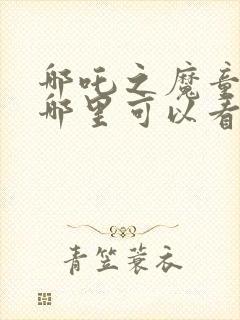 哪吒之魔童
哪里可以看
青笠蓑衣